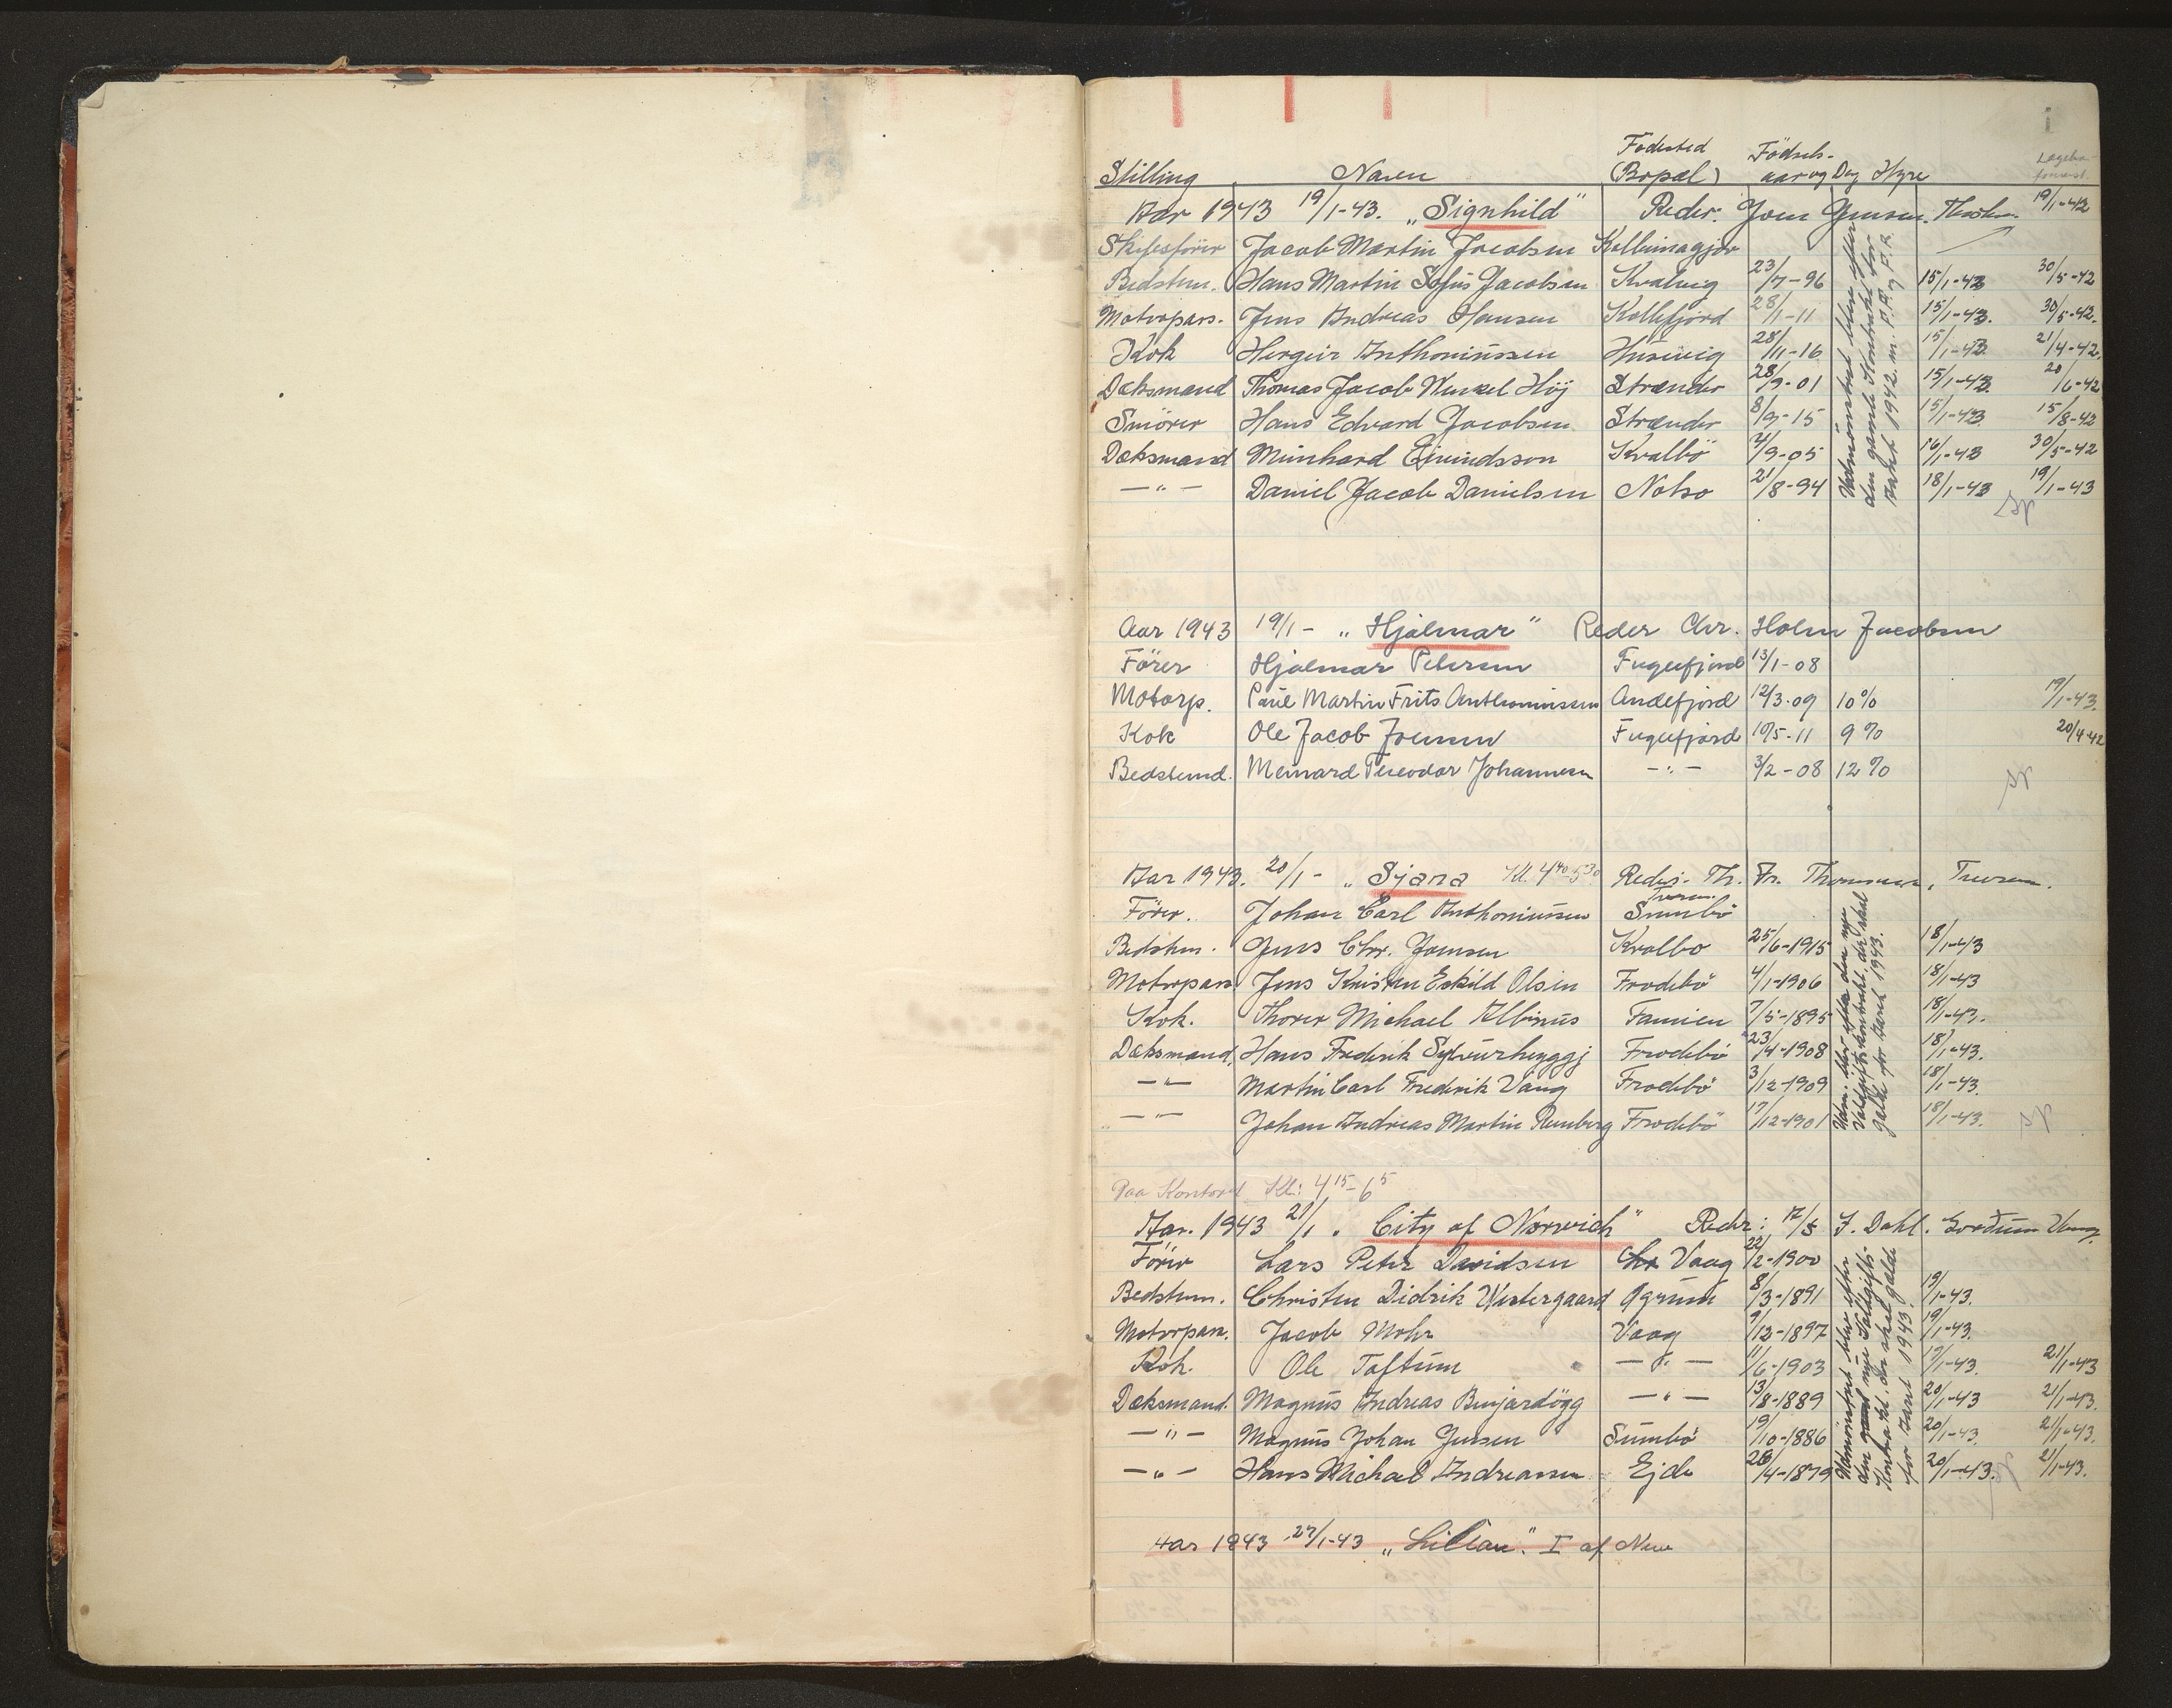 Fødested Fødsels-
Stilling Navn (Bopæl) aar og Dag Hyre
Aar 1943 19/1-43. „Signhild" Reder. Joen Jensen. Thorshn. 19/1-43
Skibsfører Jacob Martin Jacobsen
Bedstm. Hans Martin Sofus Jacobsen Kvalvig 23/7-96 15/1-43 30/5-42
Motorpas. Jens Andreas Hansen Kollefjord 28/1-11 15/1-43. 30/5-42.
Kok Hergeir Anthoniussen Husevig 28/11-16 15/1-43. 21/4-42.
Dæksmand Thomas Jacob Wenzel Høj Strænder 28/9-01 15/1-43. 20/6-42
Smører Hans Edvard Jacobsen Strænder 8/9-15 15/1-43 15/8-42
Dæksmand Meinhard Eivindsson Kvalbø 4/9-05 16/1-43 30/5-42
— " — Daniel Jacob Danielsen Nolsø 21/8-94 18/1-43 19/1-43
den gamle Kontrakt for
Aaret 1942. m. P.P. og P.R.
Aar 1943 19/1 - „Hjalmar" Reder Chr. Holm Jacobsen
Fører Hjalmar Petersen Fuglefjord 13/1-08
Motorp. Paul Martin Frits Anthoniussen Andefjord 12/3-09 10% 19/1-43.
Kok Ole Jacob Joensen Fuglefjord 10/5-11 9% 20/4-42
Bedstemd. Meinard Theodor Johannesen — " — 3/2-08 12%
Aar 1943. 20/1 - „Sjana Kl. 4 40-5 30 Reder. Th. Fr. Thomsen, Tveraa.
Fører. Johan Carl Anthoniussen Sumbø
Bedstm. Jens Chr. Joensen Kvalbø 25/6-1915 18/1-43
Motorpas. Jens Kristen Eskild Olsen Frodebø 4/1-1906 18/1-43
Kok. Thorer Michael Albinus Famien 7/5-1895 18/1-43.
Dæksmand. Hans Frederik Sylvurhyggj Frodebø 23/4-1908 18/1-43.
— " — Martin Carl Fredrik Vang Frodebø 3/12-1909 18/1-43.
— " — Johan Andreas Martin Renberg Frodebø 17/12-1901 18/1-43.
gælde for Aaret 1943.
Paa Kontoret Kl: 4 15-6 5
Aar. 1943 21/1. „City of Norwich" Reder: A/S J. Dahl.
Fører Lars Peter Davidsen Vaag 22/2-1900
Bedstem. Christen Didrik Vestergaard 8/3-1891 19/1-43.
Motorpas. Jacob Mohr Vaag 9/12-1897 19/1-43.
Kok. Ole Toftum — " — 11/6-1903 19/1-43. 21/1-43
Dæksmand. Magnus Andreas Benjardøgg — " — 13/8-1889 20/1-43 21/1-43.
— " — Magnus Johan Jensen Sumbø 19/10-1886 20/1-43. 21/1-43.
— " — Hans Michael Andreasen Ejde 26/4-1879 20/1-43. 21/1-43.
den nye Saltgifts-
Kontrakt, der skal gælde
for Aaret 1943.
Aar 1943 27/1-43 „Lilian". I af New